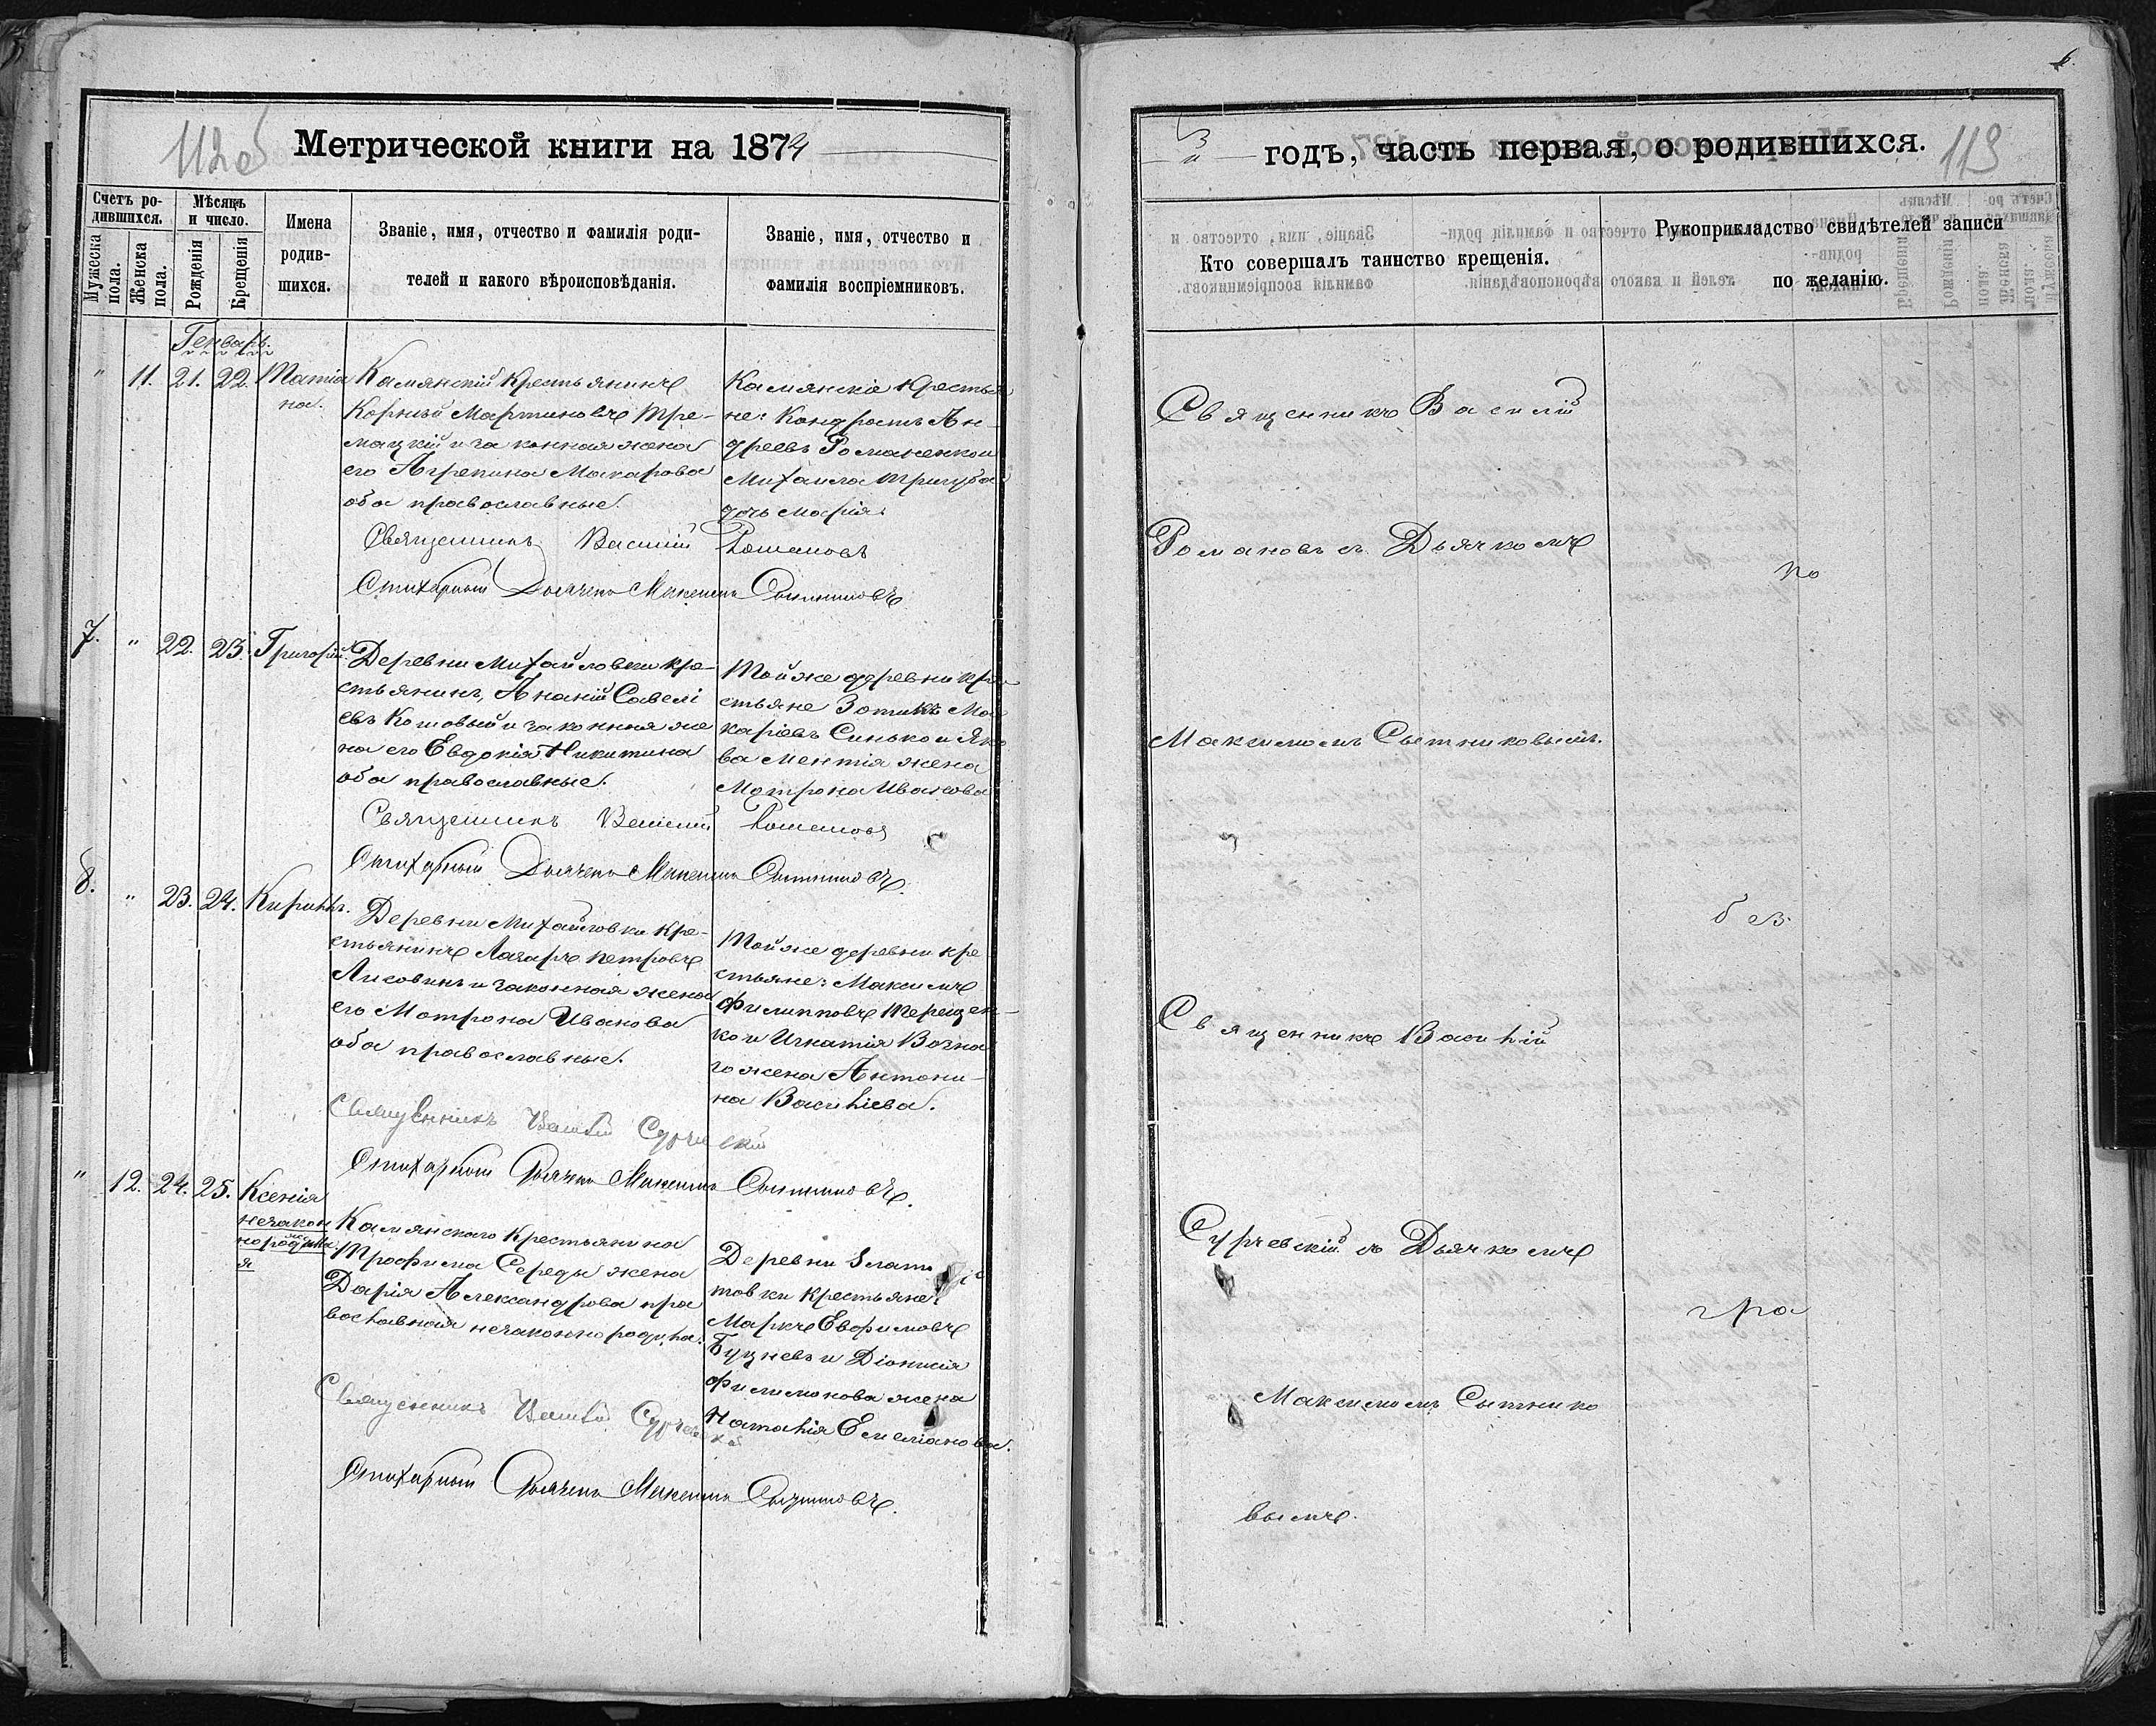 112об
Метрической книги на 1874
Счетъ ро-
дившихся.
Мужеска
пола.
Женска
пола.
Мѣсяцъ
и число.
Рожденія
Крещенія
Имена
родив-
шихся.
Званіе, имя, отчество и фамилія роди-
телей и какого вѣроисповѣданія.
Званіе, имя, отчество и
фамилія воспріемниковъ.
Генварь.
" 11. 21. 22. Татіа
на.
Камянскій Крестьянинъ
Корнилій Мартиновъ Тре-
мацкій и законная жена
его Агрепина Макарова
оба православные.
Камянскіе Крестья
не: Кондратъ Ан-
дреевъ Романенко и
Михаила Тригуба
дочь Марія.
Священникъ Василій Романовъ
Стихарный Дьячекъ Максимъ Сытниковъ
7. " 22. 23. Григорій.
Деревни Михайловки кре-
стьянинъ, Ананій Савелі
евъ Кошовый и законная же
на его Евдокія Никитина
оба православные.
Той же деревни кре
стьяне Зотикъ Ма
каріевъ Синько и Яко
ва Ментія жена
Мотрона Иванова
Священникъ Василій Романовъ
Стихарный Дьячекъ Максимъ Сытниковъ.
8. " 23. 24. Кириллъ.
Деревни Михайловки Кре-
стьянинъ Лазарь Петровъ
Лисовинъ и законная жена
его Мотрона Иванова
оба православные.
Той же деревни кре
стьяне: Максимъ
Филипповъ Терещен-
ко и Игнатія Возна
го жена Антони-
на Василіева.
Священникъ Василій Сурчевскій
Стихарный Дьячекъ Максимъ Сытниковъ.
" 12. 24. 25. Ксенія
незакон
норожденна
я
Камянскаго Крестьянина
Трофима Середы жена
Дарія Александрова пра
вославная незаконно родила.
Деревни
товки крестьяне:
Маркъ Евфимовъ
Буцневъ и Діонисія
Филимонова жена
Наталія Емеліанова.
Священникъ Василій Сурчевскій
Стихарный Дьячекъ Максимъ Сытниковъ.
годъ, часть первая, о родившихся.
113
Кто совершалъ таинство крещенія.
Рукоприкладство свидѣтелей записи
по желанію.
Священникъ Василій
Романовъ съ Дьячкомъ
по
Максимомъ Сытниковымъ.
без
Священникъ Василій
Сурчевскій съ Дьячкомъ
гра
Максимомъ Сытнико
вымъ.